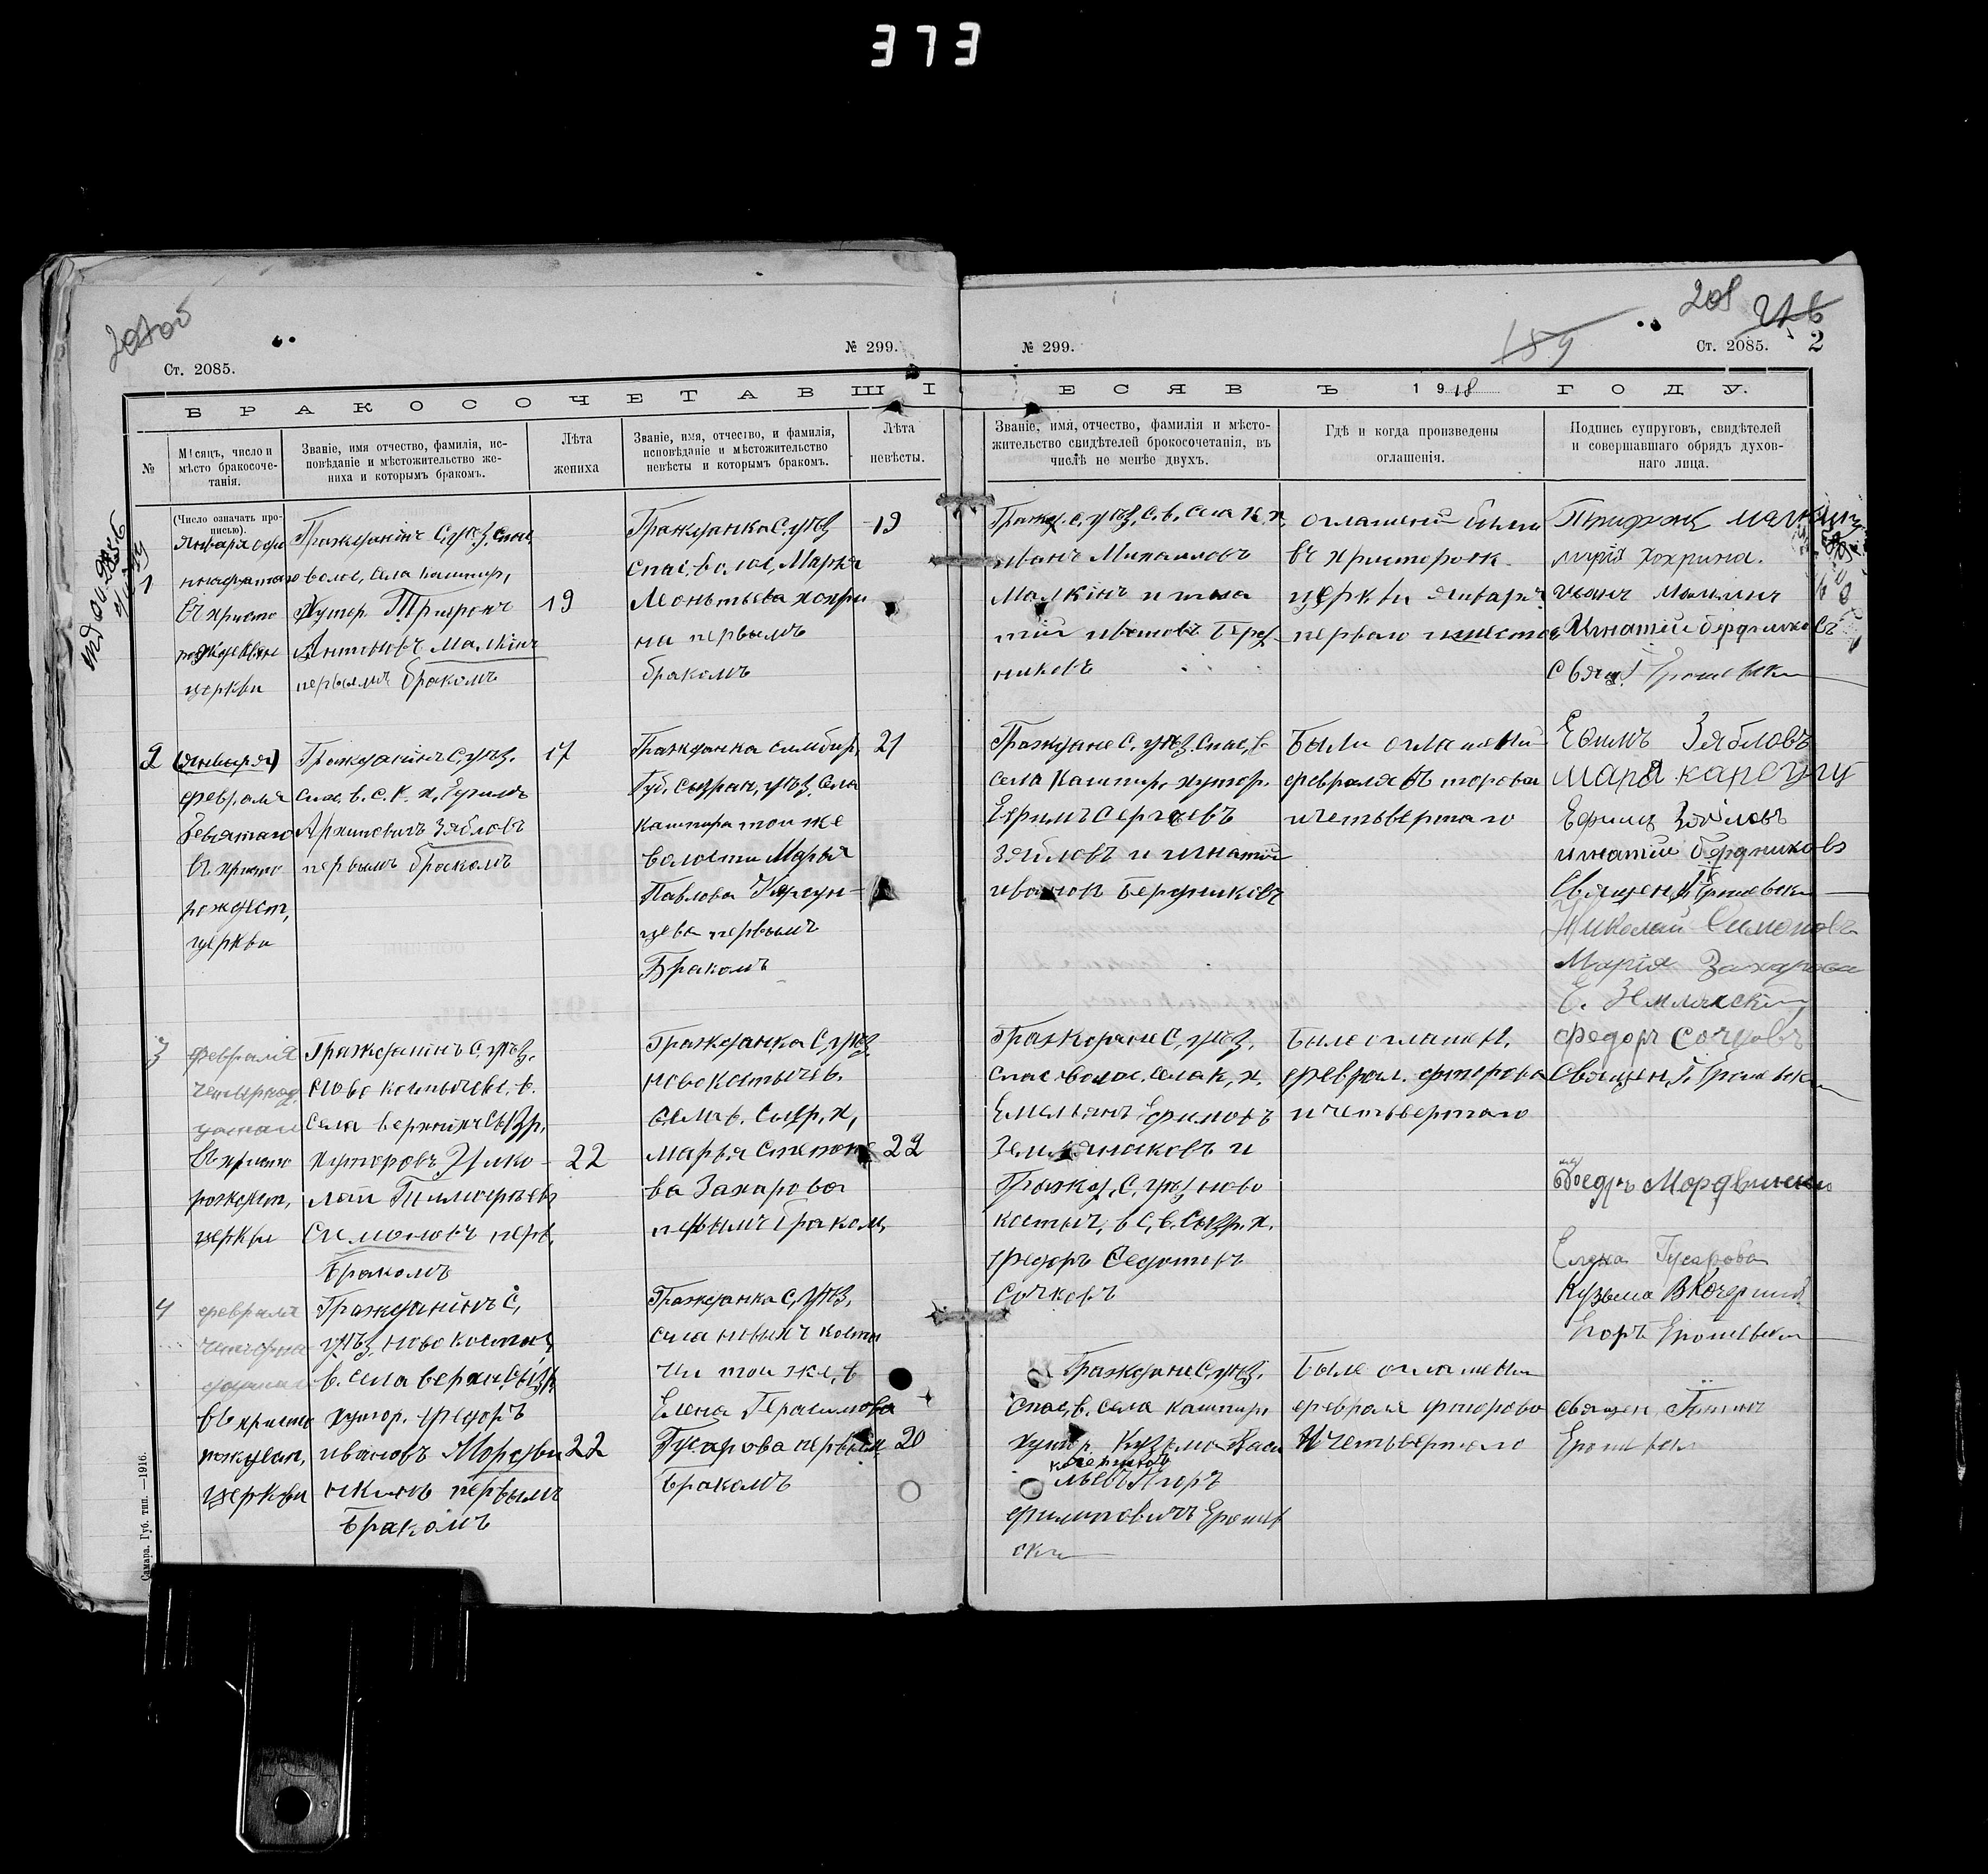 373
208
2
№ 299.
Ст. 2085.
№ 299.
Ст. 2085.
БРАКОСОЧЕТАВШІ
ЕСЯ ВЪ 1918 ГОДУ.
№
Мѣсяцъ, число и мѣсто бракосоче-
танія.
Званіе, имя отчество, фамилія, ис-
повѣданіе и мѣстожительство же-
ниха и которымъ бракомъ.
Лѣта
жениха
Званіе, имя, отчество, и фамилія,
исповѣданіе и мѣстожительство
невѣсты и которымъ бракомъ.
Лѣта
невѣсты.
Званіе, имя, отчество, фамилія и мѣсто-
жительство свидѣтелей брокосочетанія, въ
числѣ не менѣе двухъ.
Гдѣ и когда произведены
оглашенія.
Подпись супруговъ, свидѣтелей
и совершавшаго обрядъ духов-
наго лица.
(Число означать про-
писью).
1
Января оди
Въ христо
церкви
Гражданинъ С. уѣз. Спас.
волос, села Кашпир,
Хутор. Трифонъ
Антоновъ Малкінъ
первымъ бракомъ
19
Гражданка С. уѣз
Спас. волос, Марья
Леонтьева Хохри
на первымъ
бракомъ
19
Гражд. С. уѣз. С. в. села К. х.
иванъ Михаиловъ
Малкінъ и игна
тій ивановъ Берд
никовъ
оглашеніи были
въ христорож
церкви январ
перваго
Марія Хохрина.
Иванъ Малкинъ
Игнатій бердниковъ
Свящ.
2
(января)
февраля
девятаго
въ христо
рождест,
церкви
Гражданинъ С. уѣз.
Спас. в. С. К. х. Ефимъ
Архиповичъ Зябловъ
первымъ бракомъ
17
Гражданка симбир,
Губ. Сызран, уѣз. села
кашпира той же
волости Марья
Павлова Карсун-
цева первымъ
Бракомъ
21
Граждане С. уѣз. Спас, в
села Кашпир, хутор.
Ефимъ Сергѣевъ
Зябловъ и игнатій
ивановъ Бердниковъ
Были оглашени
февраля второва
и четвертаго
Ефимъ Зябловъ
Мара карсуну
Ефимъ Зябловъ
игнатій бердниковъ
Священ,
Николай Симоновъ
Марія Захарова
Е.
3
февраля
четырнад
цатаго
въ христо
рождест,
церкви
Гражданинъ С, уѣз.
Ново костычевс. в.
Села верхнихъ Сызр,
Хуторовъ Нико
лай Тимофѣевъ
Симоновъ перв,
Бракомъ
22
Гражданка С, уѣз
новокостычев.
села в. сызр, х,
марья Степано
ва Захарова
первымъ бракомъ
22
Граждане С, уѣз.
Спас. волос. села К, х,
Емельянъ Ефимовъ
Земляносковъ и
Гражд. С, уѣз ново
костыч, в С, в. Сызр. х.
Федоръ Седотовъ
Сочковъ
Были оглашен,
феврал. фторова
и четвертаго
Федоръ Сочковъ
Священ,
4
февраля
въ христо
рождест,
церкви
Гражданинъ С,
уѣз, ново костыч
в. села верхн Сызр,
хутор. федоръ
ивановъ Мордви
нкинъ первымъ
Бракомъ
22
Гражданка С, уѣз,
села новыхъ косты
чи той же, в
Елена Герасимова
Гусарова первым
Бракомъ
20
Граждане С, уѣз.
Спас, в. села кашпир,
хутор. Кузьма Васи
кочерин
льевъ Игоръ
филиповичъ Ерошев
ски
Были оглашени
февраля фторово
И четвертаго
Федоръ Мордвинкин
Елена Гусарова
Кузьма В Кочерин
Егоръ Ерошевски
священ,
Ерошевски
Самара. Губ. тип. —1916.